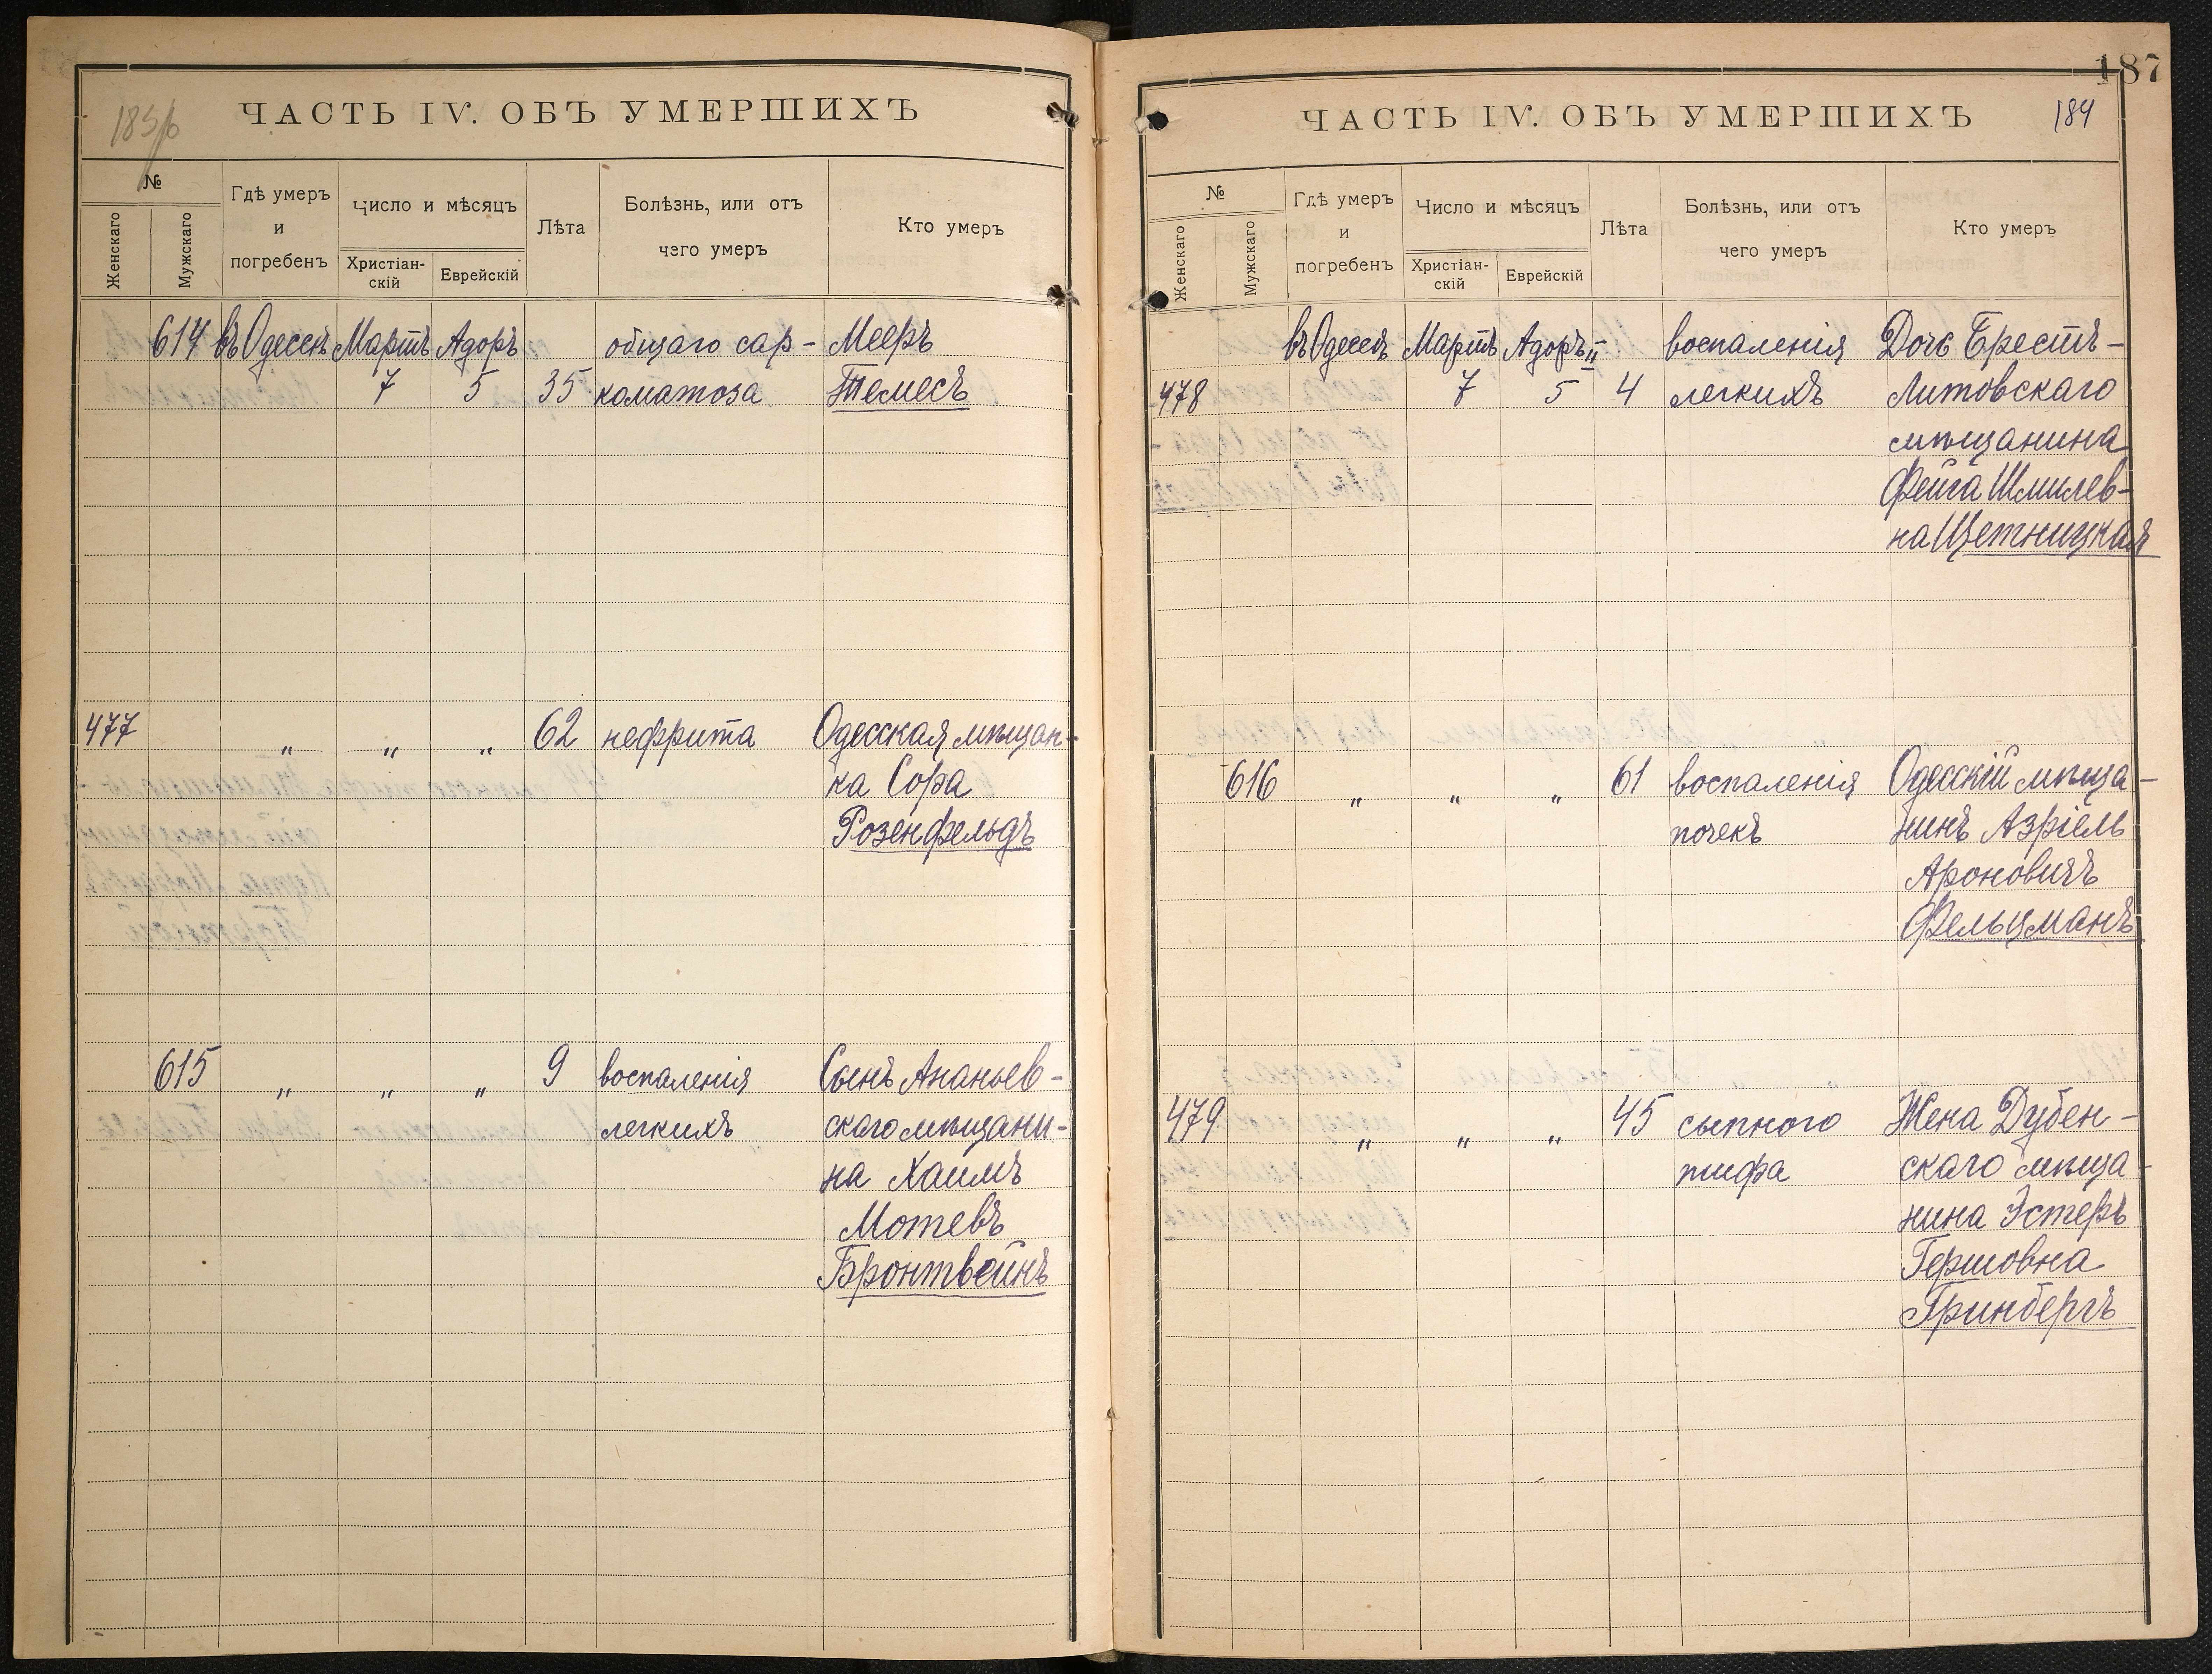 ЧАСТЬ IV. ОБЪ УМЕРШИХЪ
№
Женскаго
Мужскаго
Гдѣ умеръ
и
погребенъ
Число и мѣсяцъ
Христіан-
скій
Еврейскій
Лѣта
Болѣзнь, или отъ
чего умеръ
Кто умеръ
614 въ Одессѣ Мартъ Адоръ общаго сар- Мееръ
7 5 35 коматоза Темесъ
477 " " " 62 нефрита Одесская мѣщан-
ка Сора
Розенфельдъ
615 " " " 9 воспаленія Сынъ Ананьев-
легкихъ скаго мѣщани-
на Хаимъ
Мотевъ
Бронтвейнъ
187
ЧАСТЬ IV. ОБЪ УМЕРШИХЪ 184
№
Женскаго
Мужскаго
Гдѣ умеръ
и
погребенъ
Число и мѣсяцъ
Христіан-
скій
Еврейскій
Лѣта
Болѣзнь, или отъ
чего умеръ
Кто умеръ
въ Одессѣ Мартъ Адоръ II воспаленія Дочь Брестъ-
478 7 5 4 легкихъ Литовскаго
мѣщанина
Фейга Шмилев-
на Цетницкая
616 " " " 61 воспаленія Одесскій мѣща-
почекъ нинъ Азріель
Ароновичъ
Фельцманъ
479 " " " 45 сыпного Жена Дубен-
тифа скаго мѣща-
нина Эстеръ
Гершовна
Гринбергъ